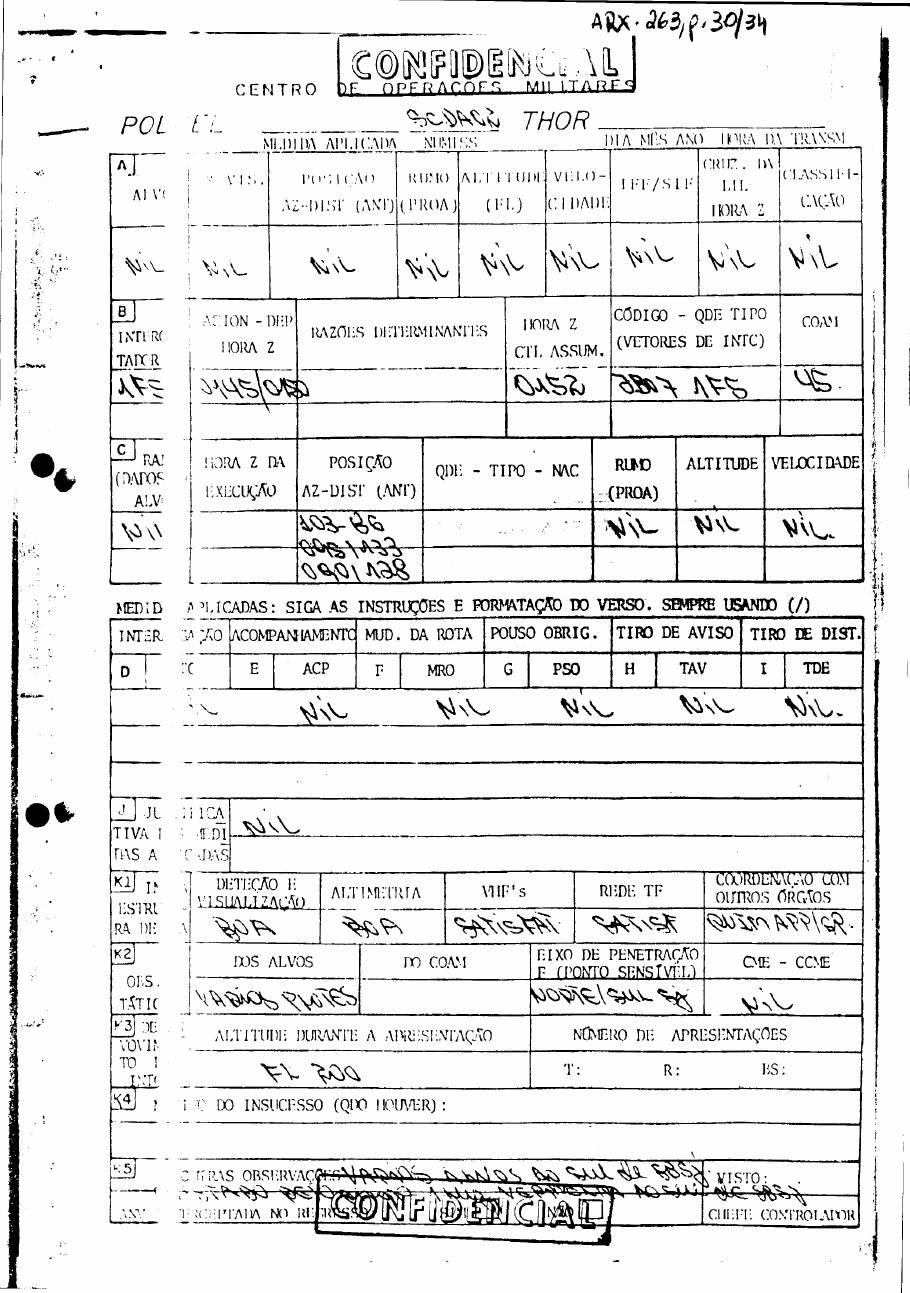 ARX. 263, p. 30/34
CONFIDENCIAL
CENTRO DE OPERAÇOES MILITARES
POL EL SCDACZ THOR
MEDIDA APLICADA NUMISS DIA MÊS ANO HORA DA TRANSM
A ALV VIS. POSIÇÃO AZ-DIST (ANT) RUMO (PROA) ALTITUDE (FL) VELO-CIDADE IFF/SIF CRUZ. DA LIL HORA Z CLASSIFI-CAÇÃO
NiL NiL NiL NiL NiL NiL NiL NiL NiL
B INTERC TADOR ACION - DEP HORA Z RAZÕES DETERMINANTES HORA Z CTL ASSUM. CÓDIGO - QDE TIPO (VETORES DE INTC) COAM
1F5 0145/0150 0152 1F5 45.
C RA (DADOS ALV HORA Z DA EXECUÇÃO POSIÇÃO AZ-DIST (ANT) QDE - TIPO - NAC RUMO (PROA) ALTITUDE VELOCIDADE
Nil 103-86 NiL NiL NiL.
095/133
090/128
MEDID APLICADAS: SIGA AS INSTRUÇÕES E FORMATAÇÃO DO VERSO. SEMPRE USANDO (/)
INTER GAÇÃO ACOMPANHAMENTO MUD. DA ROTA POUSO OBRIG. TIRO DE AVISO TIRO DE DIST.
D E ACP F MRO G PSO H TAV I TDE
NiL NiL NiL NiL NiL.
J JU IFICA
TIVA MEDI NiL
DAS A CADAS
K1 IN ESTRU RA DE DETEÇÃO E VISUALIZAÇÃO ALTIMETRIA VHF's REDE TF COORDENAÇÃO COM OUTROS ÓRGÃOS
BOA BOA SATISFAT SATISF QUIM APP/GR.
K2 OBS. TÁTIC DOS ALVOS DO COAM EIXO DE PENETRAÇÃO E (PONTO SENSÍVEL) CME - CCME
VARIOS PLOTES NORTE/SUL SJ NiL
K3 DE VOVIM TO INT ALTITUDE DURANTE A APRESENTAÇÃO NÚMERO DE APRESENTAÇÕES
FL 200 T: R: BS:
K4 O DO INSUCESSO (QDO HOUVER):
K5 TRAS OBSERVAÇ VARIOS ALVOS AO SUL de SBSJ VISTO:
AO SUL DE SBSJ
ANV ERCEPTADA NO REGRESS CHEFE CONTROLADOR
CONFIDENCIAL